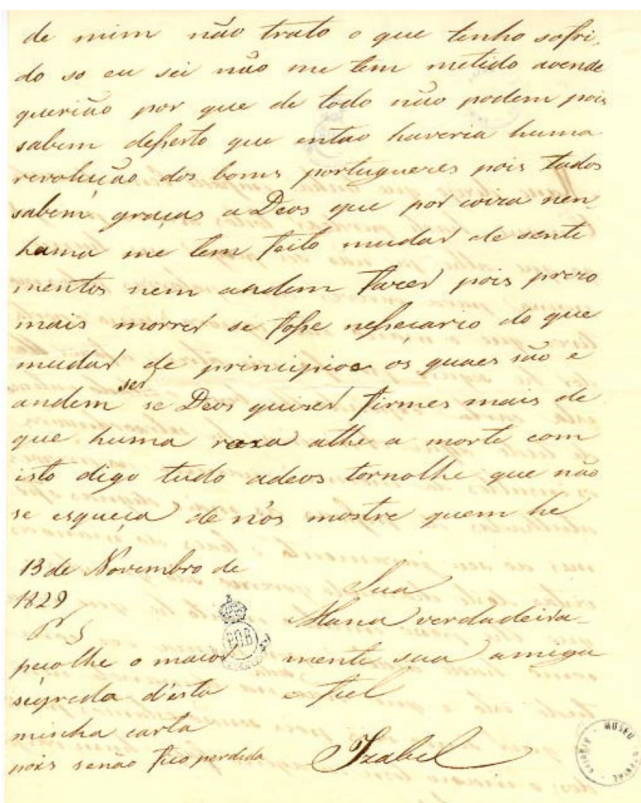 de mim não trato o que tenho sofri-
do so eu sei não me tem metido aonde
querião por que de todo não podem pois
sabem deserto que entao haveria huma
revolução dos boms portugueres pois todos
sabem graças a Deos que por coiza nen
huma me tem feito mudar de senti
mentos nem andem fazer pois prezo
mais morrer se fosse nessecario do que
mudar de principios ós quaes são e
andem ser se Deos quiser firmes mais de
que huma roxa athe a morte com
isto digo tudo adeos tornolhe que não
se esqueça de nós mostre quem he
13 de Novembro de
1829
Sua
Mana verdadeira-
mente sua amiga
fiel
Izabel
PS
peço lhe o maior
segredo d'esta
minha carta
pois senão fico perdida
P.O.B
MUSEU